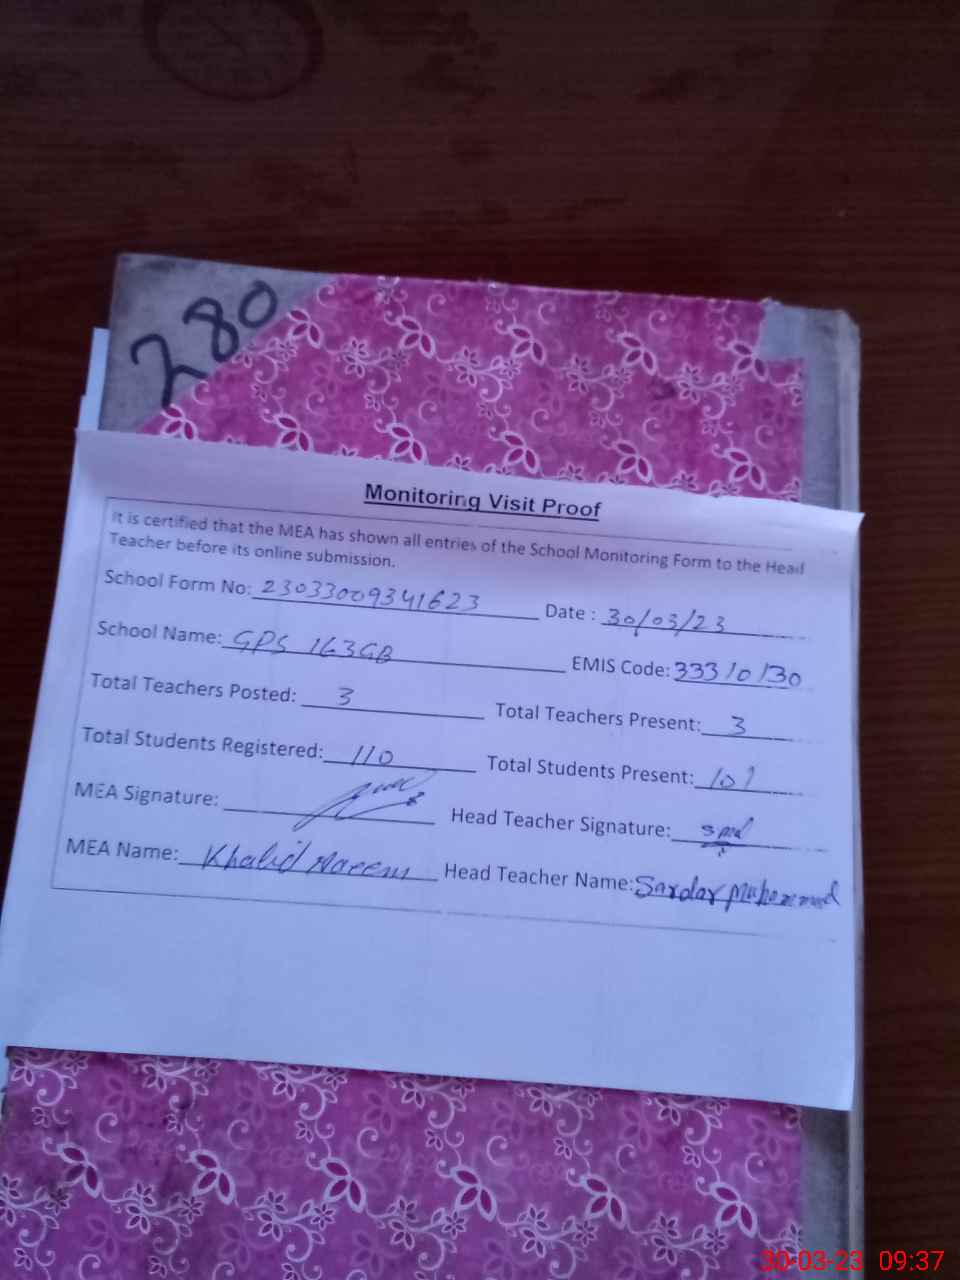 280
Monitoring Visit Proof
It is certified that the MEA has shown all entries of the School Monitoring Form to the Head
Teacher before its online submission.
School Form No: 23033009341623 Date : 30/03/23
School Name: GPS 163GB EMIS Code: 33310130
Total Teachers Posted: 3 Total Teachers Present: 3
Total Students Registered: 110 Total Students Present: 101
MEA Signature: Head Teacher Signature: smd
MEA Name: Khalid Naeem Head Teacher Name: Sardar Muhammad
30-03-23 09:37